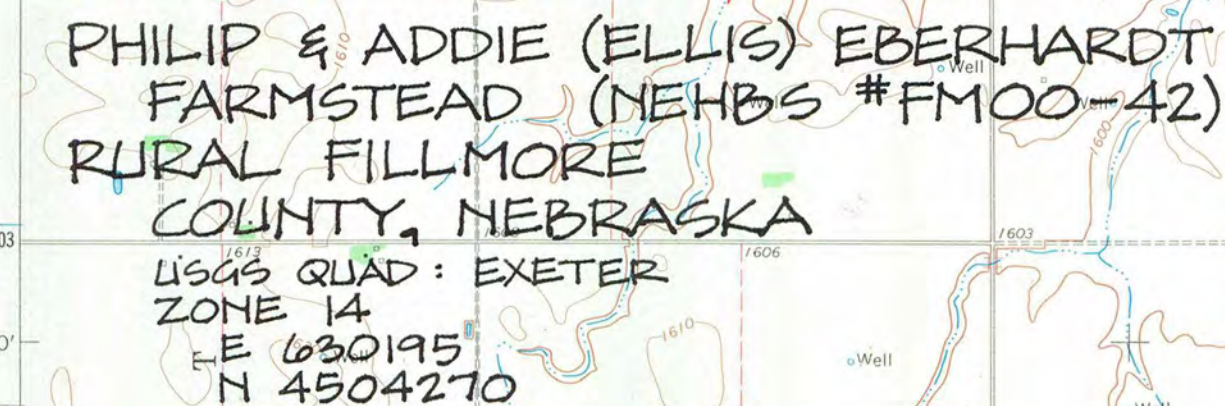 PHILIP & ADDIE (ELLIS) EBERHARDT
FARMSTEAD (NEHBS #FM00-42)
RURAL FILLMORE
COUNTY, NEBRASKA
USGS QUAD: EXETER
ZONE 14
E 630195
N 4504270
1610
Well
Well
1600
03
1613
1606
1603
1610
Well
T
0'